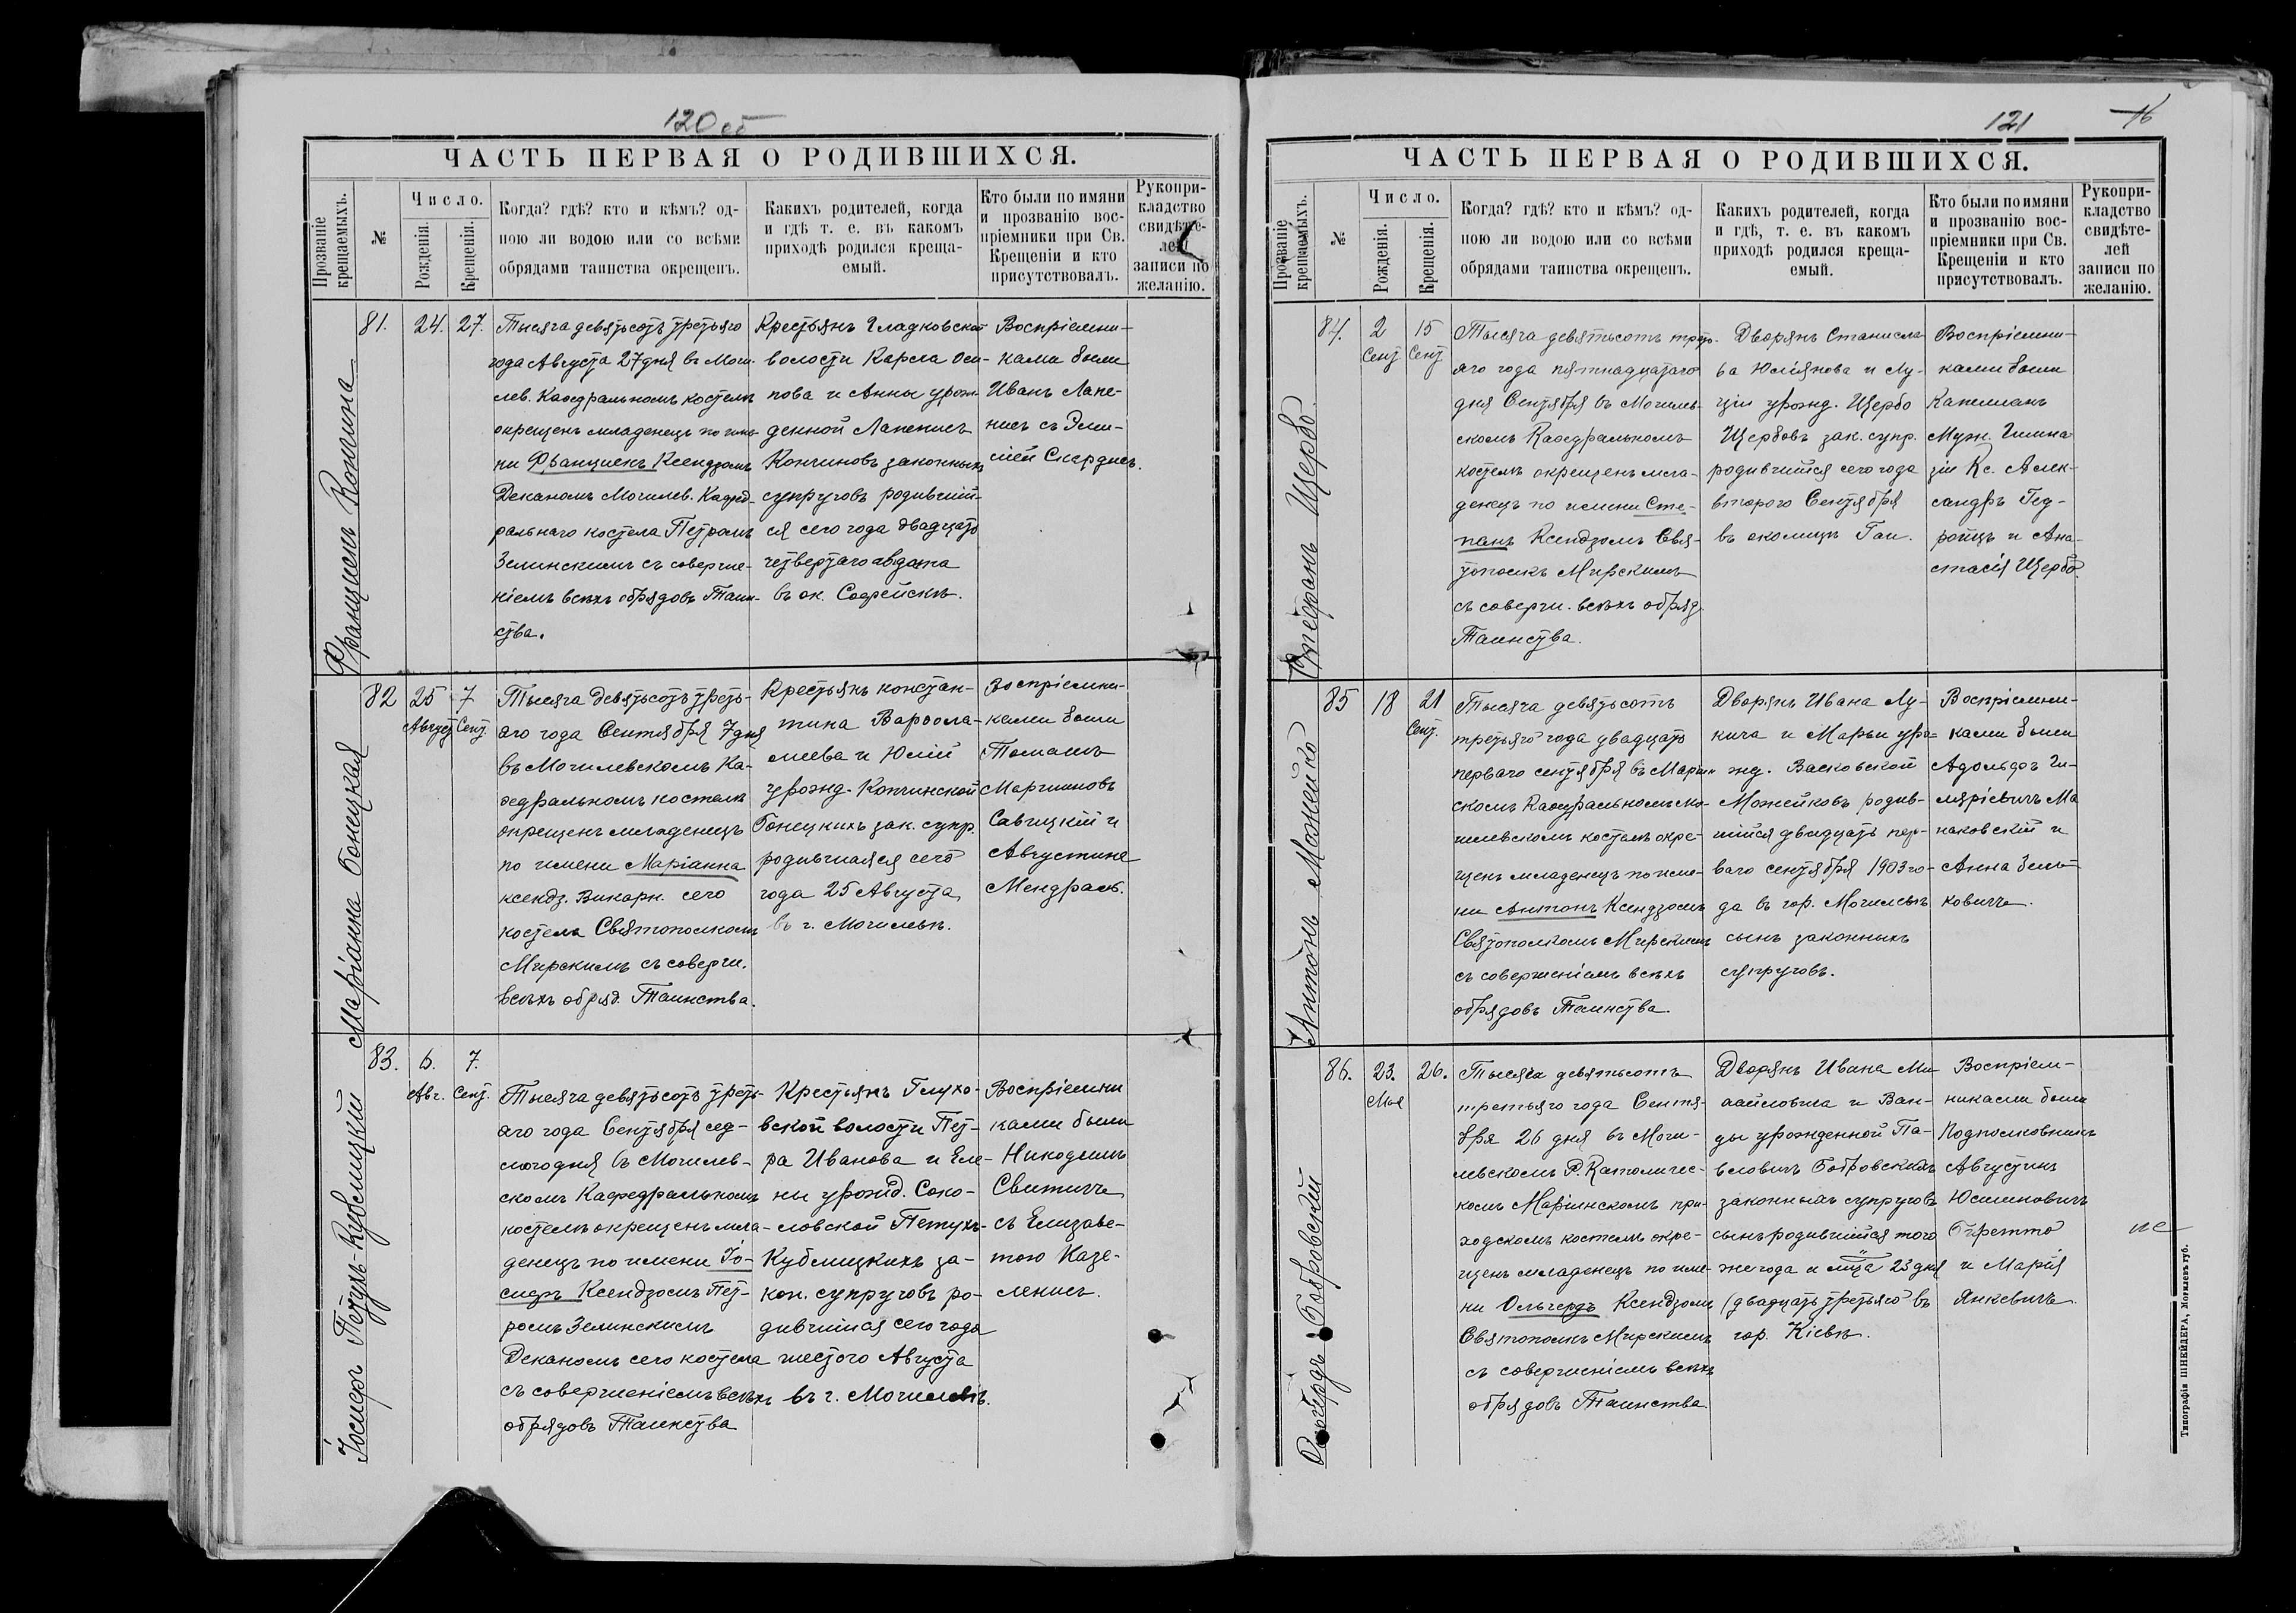 120 об
ЧАСТЬ ПЕРВАЯ О РОДИВШИХСЯ.
Прозваніе крещаемыхъ.
№
Число.
Рожденія.
Крещенія.
Когда? гдѣ? кто и кѣмъ? од-
ною ли водою или со всѣми
обрядами таинства окрещенъ.
Какихъ родителей, когда
и гдѣ т. е. въ какомъ
приходѣ родился креща-
емый.
Кто были по имяни
и прозванію вос-
пріемники при Св.
Крещеніи и кто
присутствовалъ.
Рукопри-
кладство
свидѣте-
лей
записи по
желанію.
Францискъ Кончина
81.
24.
27.
Тысяча девятьсотъ третьяго
года Августа 27 дня въ Моги-
лев. Каѳедральномъ костелѣ
окрещенъ младенецъ по име-
ни Францискъ Ксендзомъ
Деканомъ Могилев. Каѳед-
ральнаго костела Петромъ
Зелинскимъ съ соверше-
ніемъ всѣхъ обрядовъ Таин-
ства.
Крестьянъ Гладковской
волости Карла Оси-
пова и Анны урож-
денной Лапенисъ
Кончиновъ законныхъ
супруговъ родившій-
ся сего года двадцать
четвертаго августа
въ ок. Софейскѣ.
Воспріемни-
ками были
Иванъ Лапе-
нисъ съ Эми-
ліей Скардисъ.
Маріанна Бонецкая
82
25
Август
7
Сент.
Тысяча девятьсотъ треть-
яго года Сентября 7 дня
въ Могилевскомъ Ка-
ѳедральномъ костелѣ
окрещенъ младенецъ
по имени Маріанна
ксендз. Викарн. сего
костела Святополкомъ
Мирскимъ съ соверш.
всѣхъ обряд. Таинства.
Крестьянъ Констан-
тина Варѳола-
меева и Юліи
урожд. Копчинской
Бонецкихъ зак. супр.
родившаяся сего
года 25 Августа
въ г. Могилевѣ.
Воспріемни-
ками были
Томашъ
Мартиновъ
Савицкій и
Августина
Мендраль.
Іосифъ Пѣтухъ-Кублицкій
83.
6.
Авг.
7.
Сент.
Тысяча девятьсотъ треть-
яго года Сентября сед-
могодня въ Могилев-
скомъ Кафедральномъ
костелѣ окрещенъ мла-
денецъ по имени Іо-
сифъ Ксендзомъ Пет-
ромъ Зелинскимъ
Деканомъ сего костела
съ совершеніемъ всѣхъ
обрядовъ Таинства
Крестьянъ Глухо-
вской волости Пет-
ра Иванова и Еле-
ны урожд. Соко-
ловской Петухъ-
Кублицкихъ за-
кон. супруговъ ро-
дившійся сего года
шестого Августа
въ г. Могилевѣ.
Воспріемни
ками были
Никодимъ
Свитичъ
съ Елизаве-
тою Казе-
ленисъ.
121
ЧАСТЬ ПЕРВАЯ О РОДИВШИХСЯ.
Прозваніе крещаемыхъ.
№
Число.
Рожденія.
Крещенія.
Когда? гдѣ? кто и кѣмъ? од-
ною ли водою или со всѣми
обрядами таинства окрещенъ.
Какихъ родителей, когда
и гдѣ, т. е. въ какомъ
приходѣ родился креща-
емый.
Кто были по имяни
и прозванію вос-
пріемники при Св.
Крещеніи и кто
присутствовалъ.
Рукопри-
кладство
свидѣте-
лей
записи по
желанію.
Стефанъ Щербо
84.
2
Сент
15
Сент
Тысяча девятьсотъ треть-
яго года пятнадцатаго
дня Сентября въ Могилев-
скомъ Каѳедральномъ
костелѣ окрещенъ мла-
денецъ по имени Сте-
панъ Ксендзомъ Свя-
тополкъ Мирскимъ
съ соверш. всѣхъ обряд.
Таинства.
Дворянъ Станисла-
ва Юліянова и Лу-
ціи урожд. Щербо
Щербовъ зак. супр.
родившійся сего года
второго Сентября
въ околицѣ Гаи.
Воспріемни-
ками были
Капелланъ
Муж. Гимна
зіи Кс. Алек-
сандръ Гед-
ройцъ и Ана-
стасія Щербо.
Антонъ Можейко
85
18
21
Сент.
Тысяча девятьсотъ
третьяго года двадцать
перваго сентября въ Маріин
скомъ Каѳедральномъ Мо-
гилевскомъ костелѣ окре-
щенъ младенецъ по име-
ни Антонъ Ксендзомъ
Святополкомъ Мирскимъ
съ совершеніемъ всѣхъ
обрядовъ Таинства.
Дворянъ Ивана Лу-
кича и Марьи уро-
жд. Васковской
Можейковъ родив-
шійся двадцать пер-
ваго сентября 1903 го-
да въ гор. Могилевѣ
сынъ законныхъ
супруговъ.
Воспріемни-
ками были
Адольфъ Ги-
ляріевичъ Ма
наковскій и
Анна Зень-
ковичъ.
Ольгердъ Бобровскій
86.
23.
Мая
26.
Тысяча девятьсотъ
третьяго года Сентя-
бря 26 дня въ Моги-
левскомъ Р. Католичес-
комъ Маріинскомъ при-
ходскомъ костелѣ окре-
щенъ младенецъ по име-
ни Ольгердъ Ксендзомъ
Святополкъ Мирскимъ
съ совершеніемъ всѣхъ
обрядовъ Таинства
Дворянъ Ивана Ми-
хайловича и Ван-
ды урожденной Па-
вловичъ Бобровскихъ
законныхъ супруговъ
сынъ родившійся того
же года и мца 23 дня
(двадцать третьяго въ
гор. Кіевѣ.
Воспріем-
никами были
Подполковникъ
Августинъ
Юстиновичъ
Биретто
и Марія
Янкевичъ.
Типографія ШНЕЙДЕРА, Могилевъ губ.